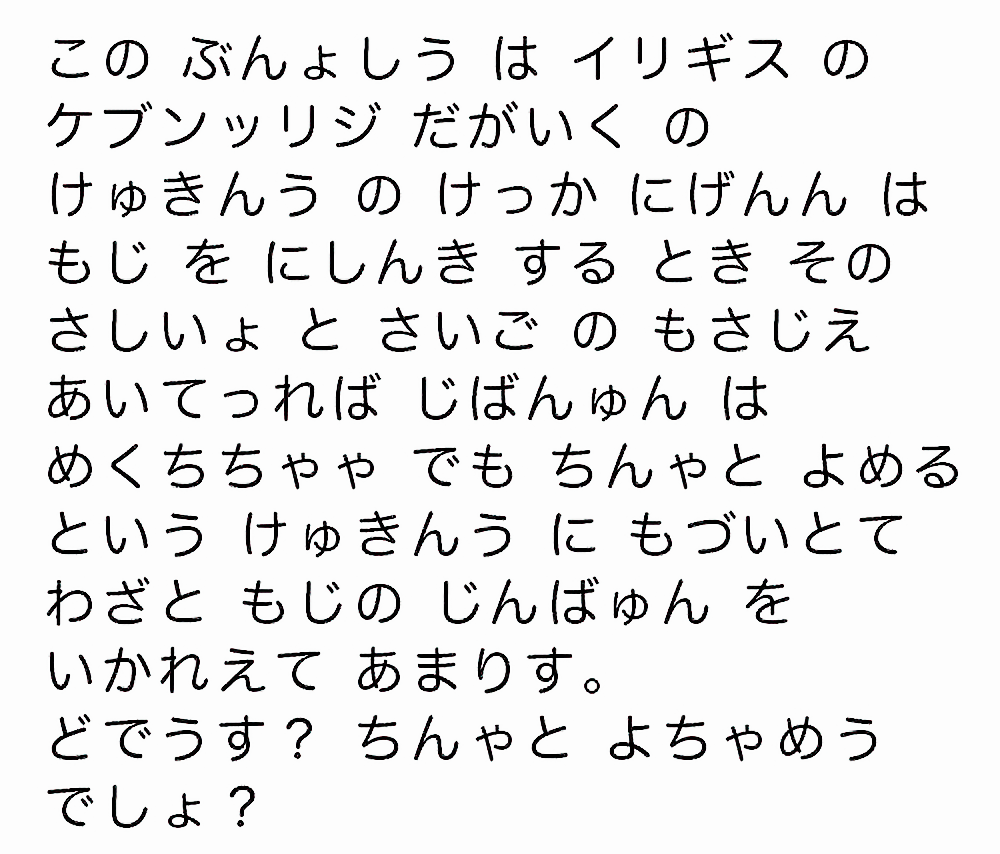 この ぶんょしう は イリギス の
ケブンッリジ だがいく の
けゅきんう の けっか にげんん は
もじ を にしんき する とき その
さしいょ と さいご の もさじえ
あいてっれば じばんゅん は
めくちちゃゃ でも ちんゃと よめる
という けゅきんう に もづいとて
わざと もじの じんばゅん を
いかれえて あまりす。
どでうす？ ちんゃと よちゃめう
でしょ？